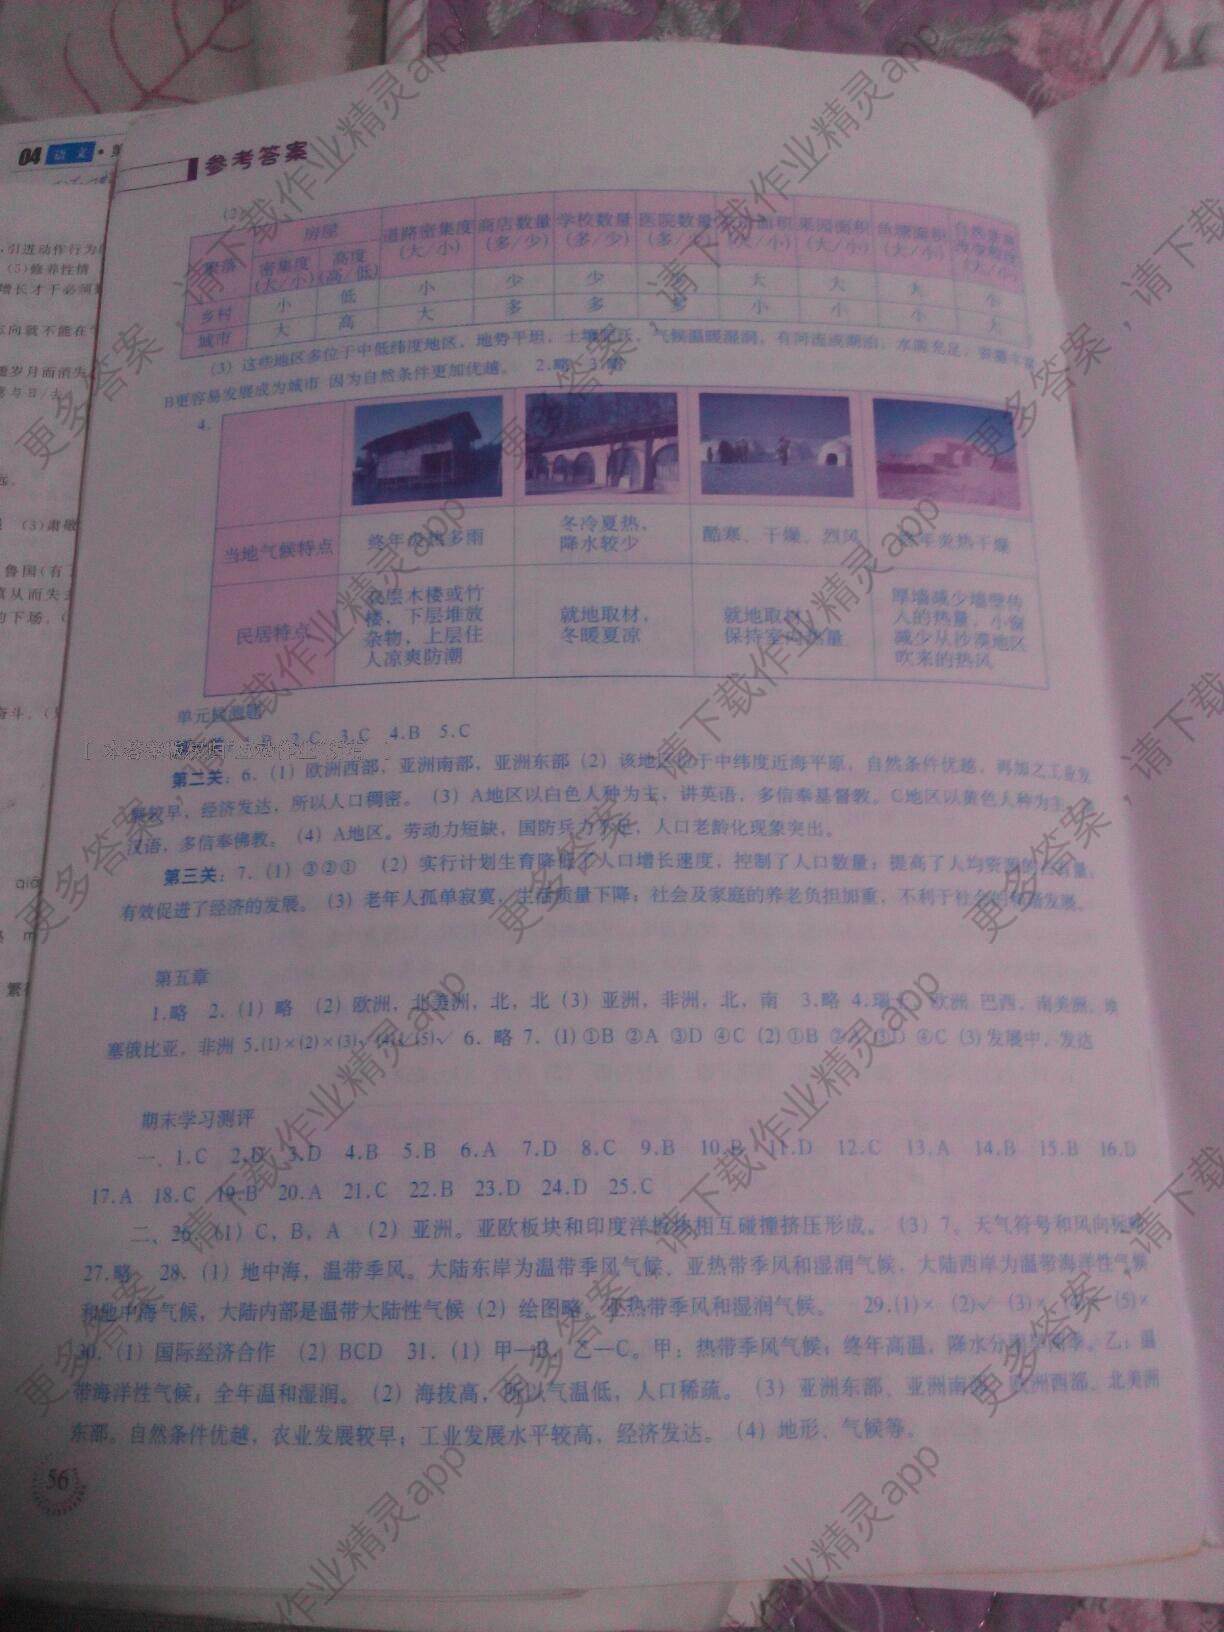 04 语文
参考答案
(2)
聚落 房屋 道路密集度(大/小) 商店数量(多/少) 学校数量(多/少) 医院数量(多/少) 面积(大/小) 果园面积(大/小) 鱼塘面积(大/小)
密集度(大/小) 高度(高/低)
乡村 小 低 小 少 少 大 大 大 小
城市 大 高 大 多 多 多 小 小 小 大
(3)这些地区多位于中低纬度地区，地势平坦，土壤肥沃，气候温暖湿润，有河流或湖泊，水源充足，
B更容易发展成为城市 因为自然条件更加优越。 2.略 3.略
4.
当地气候特点 终年炎热多雨 冬冷夏热，降水较少 酷寒、干燥、烈风 终年炎热干燥
民居特点 双层木楼或竹楼，下层堆放杂物，上层住人凉爽防潮 就地取材，冬暖夏凉 就地取材，保持室内热量 厚墙减少墙壁传入的热量，小窗减少从沙漠地区吹来的热风
单元
1.B 2.C 3.C 4.B 5.C
第二关：6.（1）欧洲西部，亚洲南部，亚洲东部（2）该地区位于中纬度近海平原，自然条件优越，再加之工业发
展较早，经济发达，所以人口稠密。（3）A地区以白色人种为主，讲英语，多信奉基督教。C地区以黄色人种为主，
汉语，多信奉佛教。（4）A地区。劳动力短缺，国防兵力不足，人口老龄化现象突出。
第三关：7.（1）③②①（2）实行计划生育降低了人口增长速度，控制了人口数量；提高了人均资源
有效促进了经济的发展。（3）老年人孤单寂寞，生活质量下降；社会及家庭的养老负担加重，不利于社会的和谐发展。
第五章
1.略 2.（1）略（2）欧洲，北美洲，北，北（3）亚洲，非洲，北，南 3.略 4.瑞士，欧洲 巴西，南美洲，埃
塞俄比亚，非洲 5.(1)×(2)×(3)√(4)√(5)√ 6.略 7.(1)①B ②A ③D ④C (2)①B ②A ③D ④C (3)发展中，发达
期末学习测评
一、1.C 2.D 3.D 4.B 5.B 6.A 7.D 8.C 9.B 10.B 11.D 12.C 13.A 14.B 15.B 16.D
17.A 18.C 19.B 20.A 21.C 22.B 23.D 24.D 25.C
二、26.（1）C，B，A（2）亚洲。亚欧板块和印度洋板块相互碰撞挤压形成。（3）7。天气符号和风向玩略
27.略 28.（1）地中海，温带季风。大陆东岸为温带季风气候、亚热带季风和湿润气候，大陆西岸为温带海洋性气候
和地中海气候，大陆内部是温带大陆性气候（2）绘图略。亚热带季风和湿润气候。 29.(1)× (2)√ (3)× (5)×
30.（1）国际经济合作（2）BCD 31.（1）甲—B，乙—C。甲：热带季风气候；终年高温，降水分雨旱两季。乙：温
带海洋性气候；全年温和湿润。（2）海拔高，所以气温低，人口稀疏。（3）亚洲东部、亚洲南部、欧洲西部、北美洲
东部。自然条件优越，农业发展较早；工业发展水平较高，经济发达。（4）地形、气候等。
56
更多答案，请下载作业精灵app